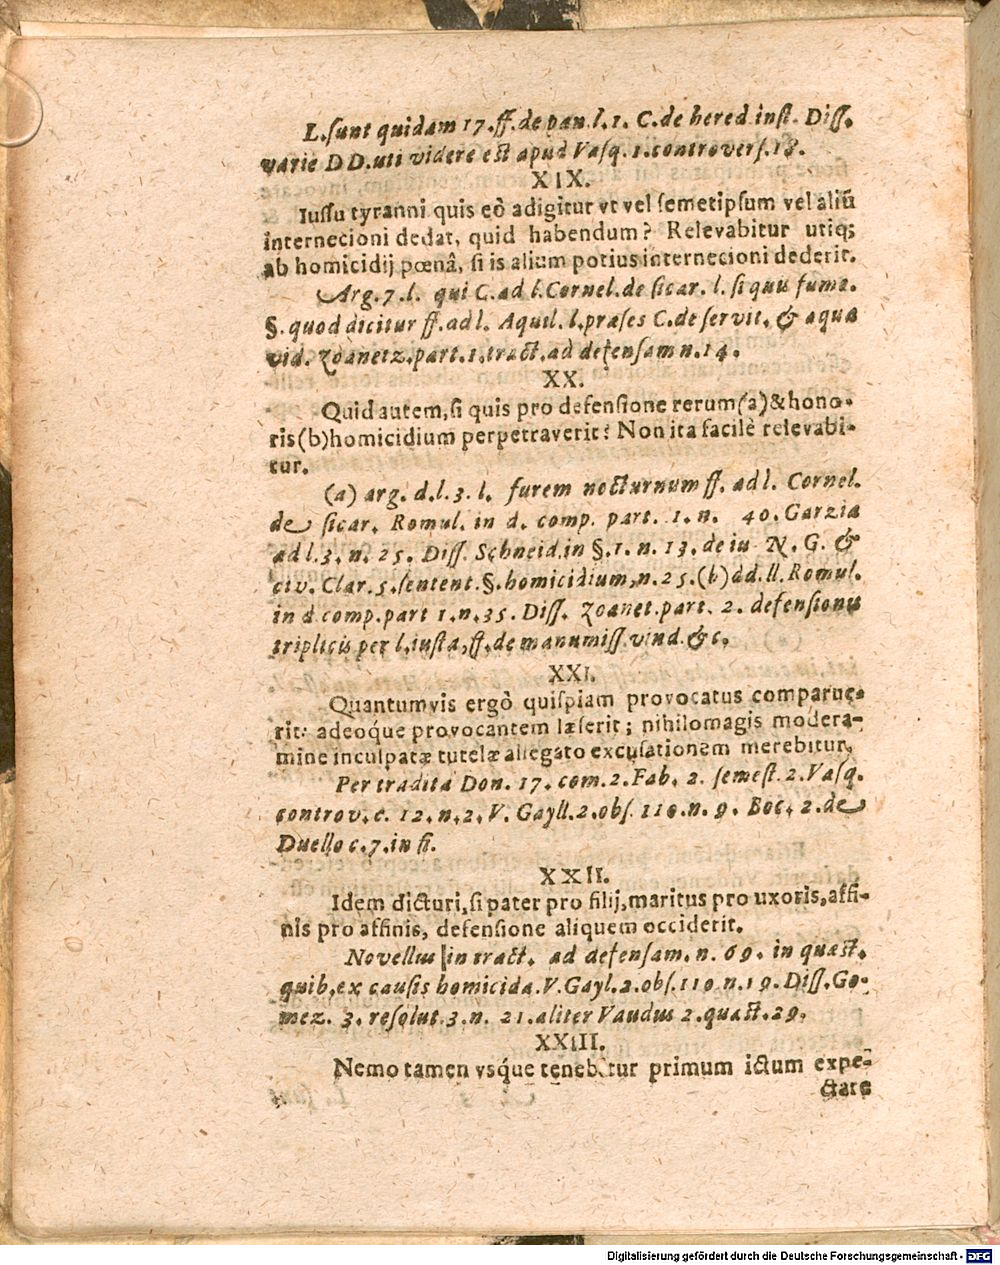 L. sunt quidam 17. ff. de pœn. l. 1. C. de hered. inst. Diss.
varie DD. uti videre est apud Vasq. 1. controvers. 18.
XIX.
Iussu tyranni quis eò adigitur vt vel semetipsum vel aliũ
internecioni dedat, quid habendum? Relevabitur utiq;
ab homicidij pœnâ, si is alium potius internecioni dederit.
Arg. 7. l. qui C. ad l. Cornel. de sicar. l. si quis fumo.
§. quod dicitur ff. ad l. Aquil. l. præses C. de servit. & aqua
vid. Zoanetz. part. 1. tract. ad defensam n. 14.
XX.
Quid autem, si quis pro defensione rerum (a) & hono-
ris (b) homicidium perpetraverit? Non ita facilè relevabi-
tur.
(a) arg. d. l. 3. l. furem nocturnum ff. ad l. Cornel.
de sicar. Romul. in d. comp. part. 1. n. 40. Garzia
ad l. 3. n. 25. Diss. Schneid. in §. 1. n. 13. de iu. N. G. &
civ. Clar. 5. sentent. §. homicidium, n. 25. (b) ad. ll. Romul.
in d comp. part 1. n. 35. Diss. Zoanet. part. 2. defensionis
triplicis per l. iusta, ff. de manumiss. vind. &c.
XXI.
Quantumvis ergò quispiam provocatus comparue-
rit: adeoq́ue provocantem læserit; nihilomagis modera-
mine inculpatæ tutelæ allegato excusationem merebitur.
Per tradita Don. 17. com. 2. Fab. 2. semest. 2. Vasq.
controv. c. 12. n. 2. V. Gayll. 2. obs. 110. n. 9. Boc. 2. de
Duello c. 7. in fi.
XXII.
Idem dicturi, si pater pro filij, maritus pro uxoris, affi-
nis pro affinis, defensione aliquem occiderit.
Novellus in tract. ad defensam. n. 69. in quæst.
quib. ex causis homicida. V. Gayl. 2. obs. 110 n. 19. Diss. Go-
mez. 3. resolut. 3. n. 21. aliter Vaudus 2. quæst. 29.
XXIII.
Nemo tamen vsq́ue tenebitur primum ictum expe-
ctare
Digitalisierung gefördert durch die Deutsche Forschungsgemeinschaft - DFG